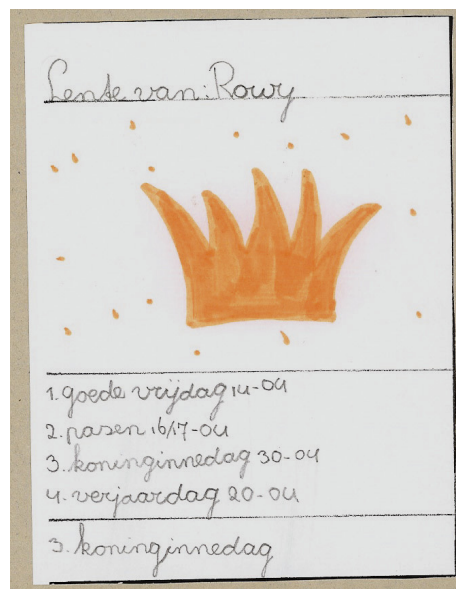 Lente van: Rowy
1. goede vrijdag 14-04
2. pasen 16/17-04
3. koninginnedag 30-04
4. verjaardag 20-04
3. koninginnedag